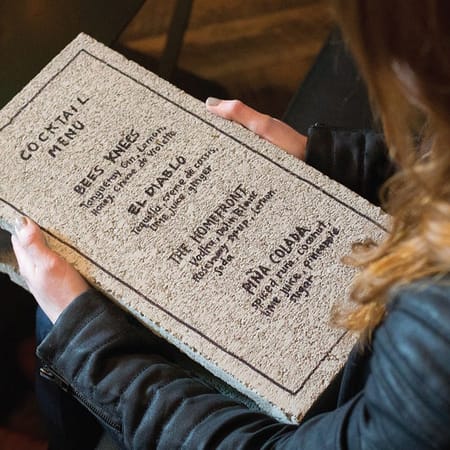 COCKTAIL
MENU
BEES KNEES
Tanqueray Gin, Lemon,
Honey, creme de violette
EL DIABLO
Tequila, creme de cassis,
Lime juice, ginger
THE HOMEFRONT
Vodka, Dolin Blanc
Rosemary syrup, lemon
Soda
PIÑA COLADA
Spiced rums, coconut
lime juice, pineapple